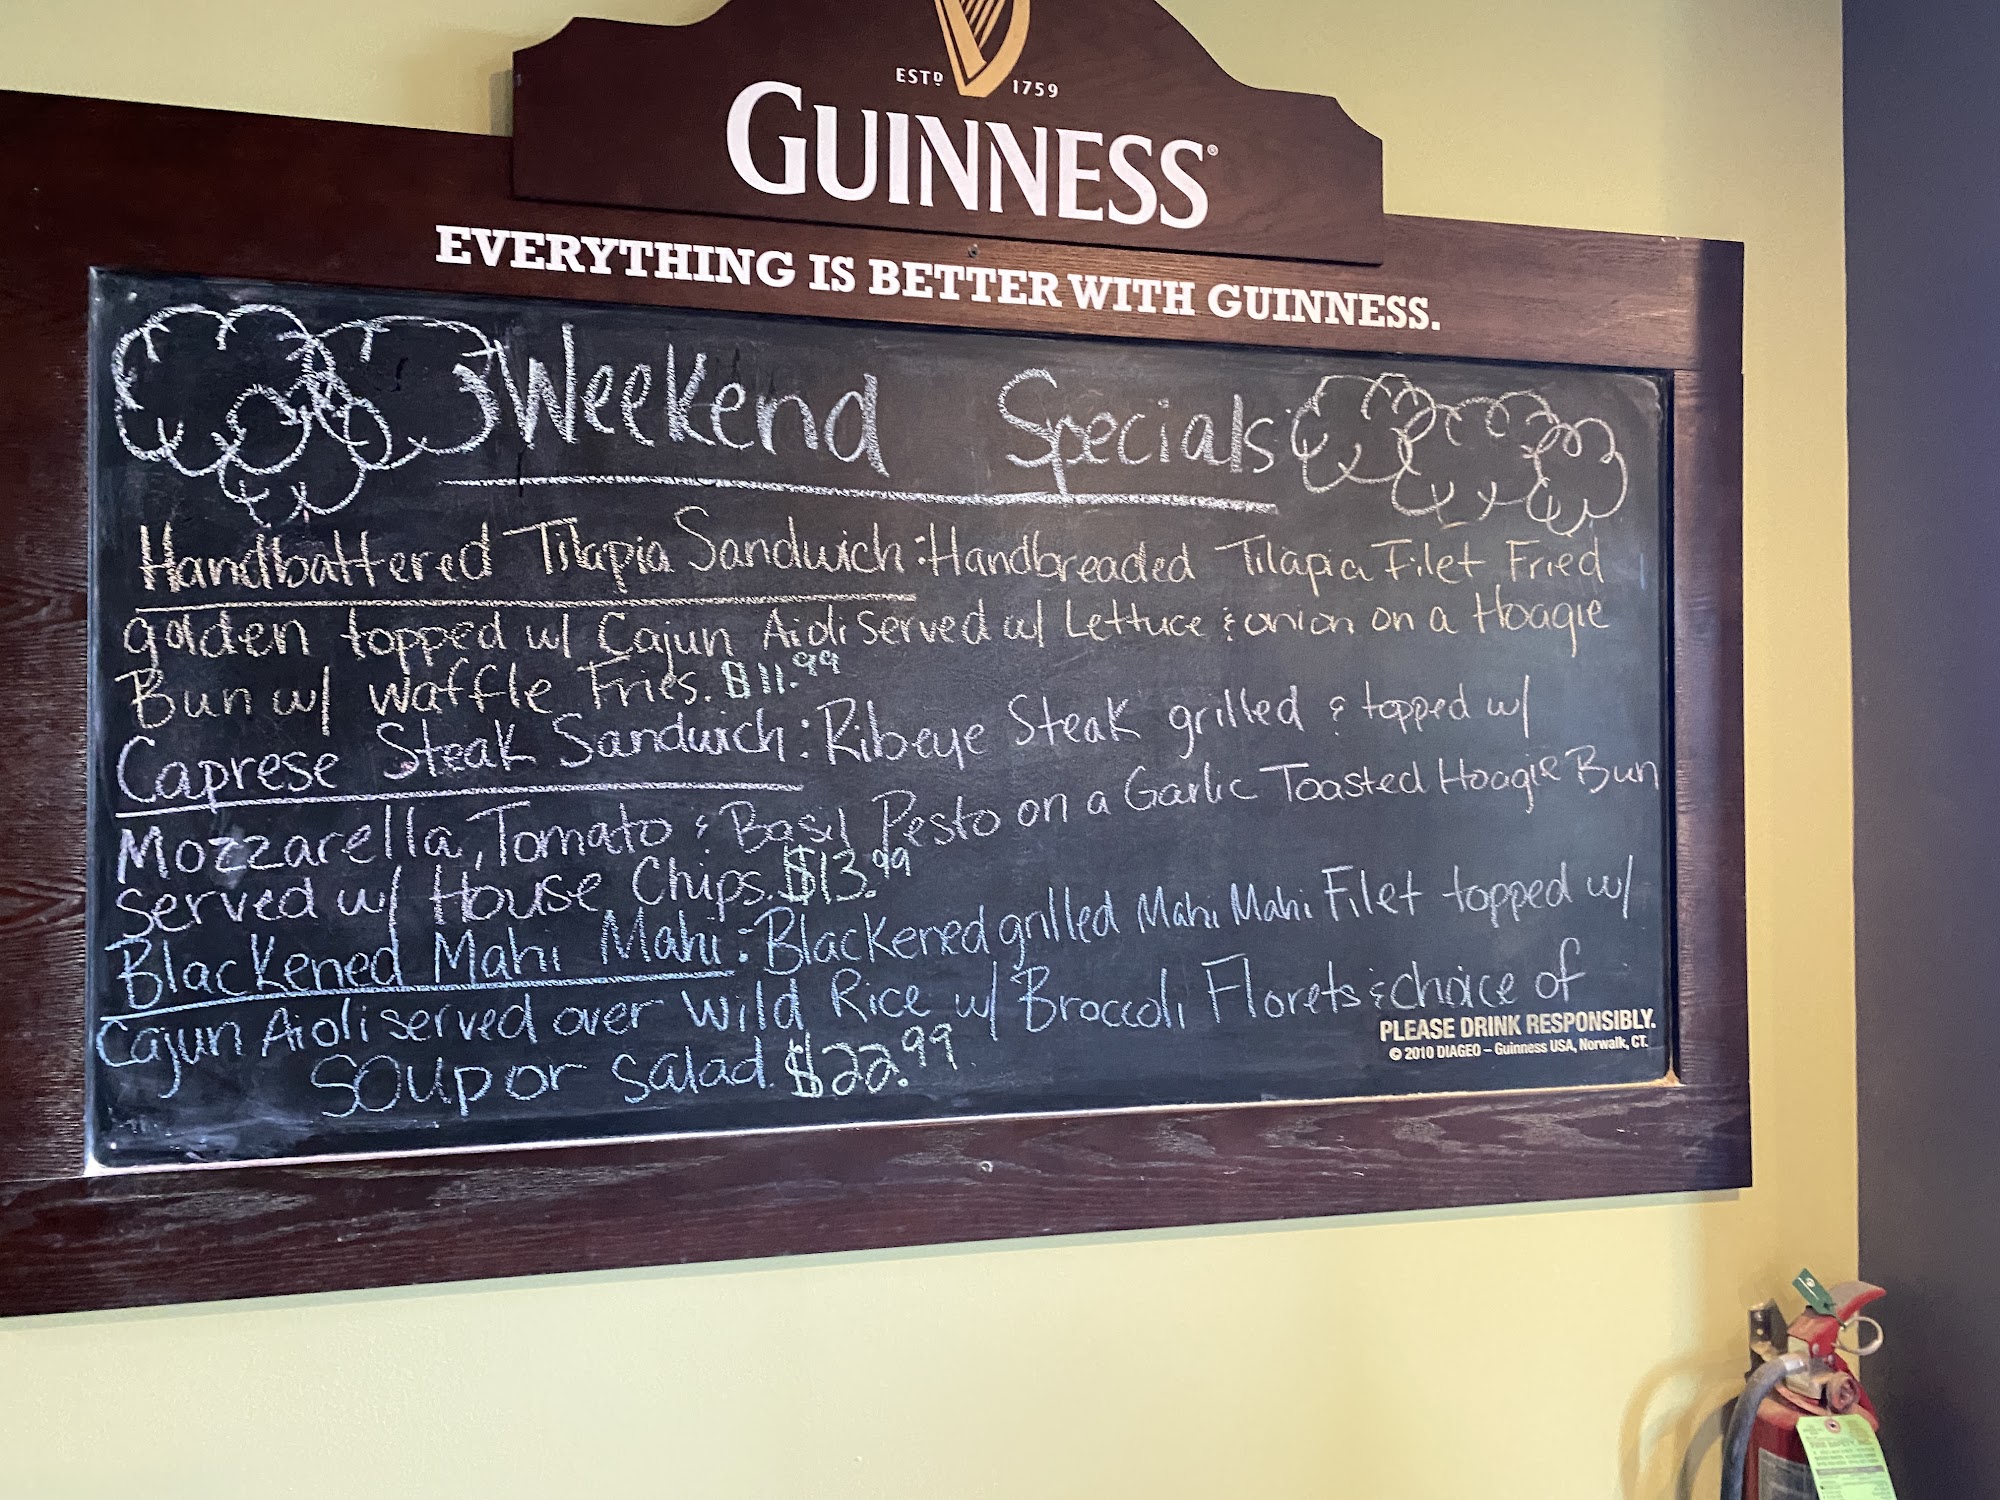 ESTD 1759
GUINNESS®
EVERYTHING IS BETTER WITH GUINNESS.
Weekend Specials
Handbattered Tilapia Sandwich: Handbreaded Tilapia Filet Fried
golden topped w/ Cajun Aioli served w/ Lettuce & onion on a Hoagie
Bun w/ waffle Fries. $11.99
Caprese Steak Sandwich: Ribeye Steak grilled & topped w/
Mozzarella, Tomato & Basil Pesto on a Garlic Toasted Hoagie Bun
served w/ House Chips. $13.99
Blackened Mahi Mahi: Blackened grilled Mahi Mahi Filet topped w/
Cajun Aioli served over Wild Rice w/ Broccoli Florets & choice of
soup or salad. $22.99
PLEASE DRINK RESPONSIBLY.
© 2010 DIAGEO – Guinness USA, Norwalk, CT.